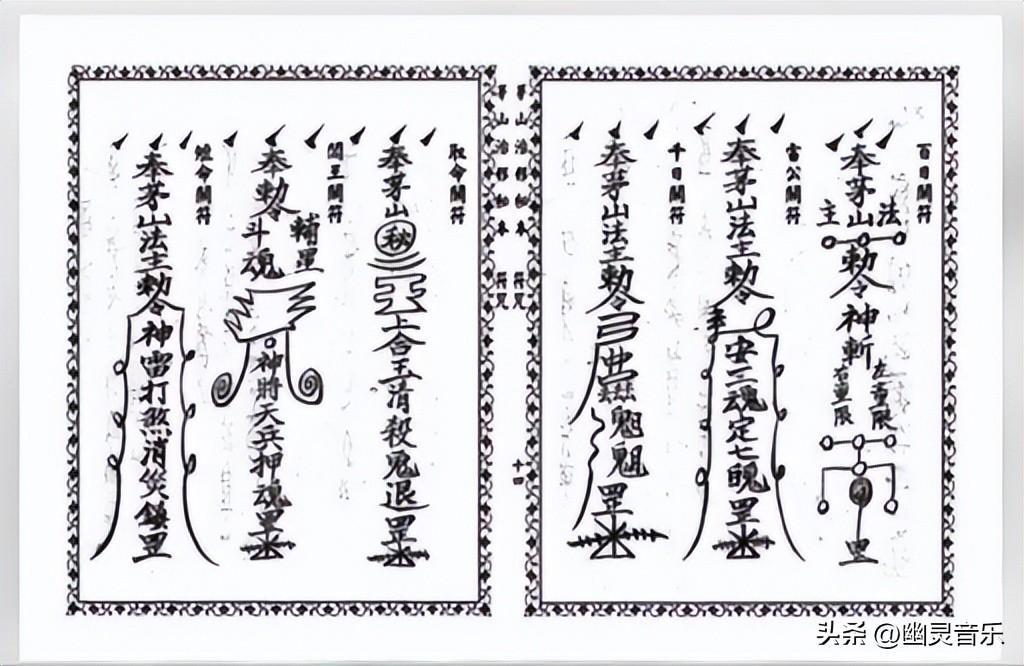 百日關符
奉茅山
法主
勅令神斬
左童限
右童限
罡
雷公關符
奉茅山法主勅令
安三魂定七魄罡
千日關符
奉茅山法主勅令
罡
茅山治邪秘本 符咒
茅山治邪秘本 符咒
十四
取命關符
奉茅山
秘
上合玉清殺鬼退罡
閻王關符
奉勅令
輔星
斗魂
神將天兵押魂罡
短命關符
奉茅山法主勅令
神雷打煞消災鎮罡
头条 @幽灵音乐